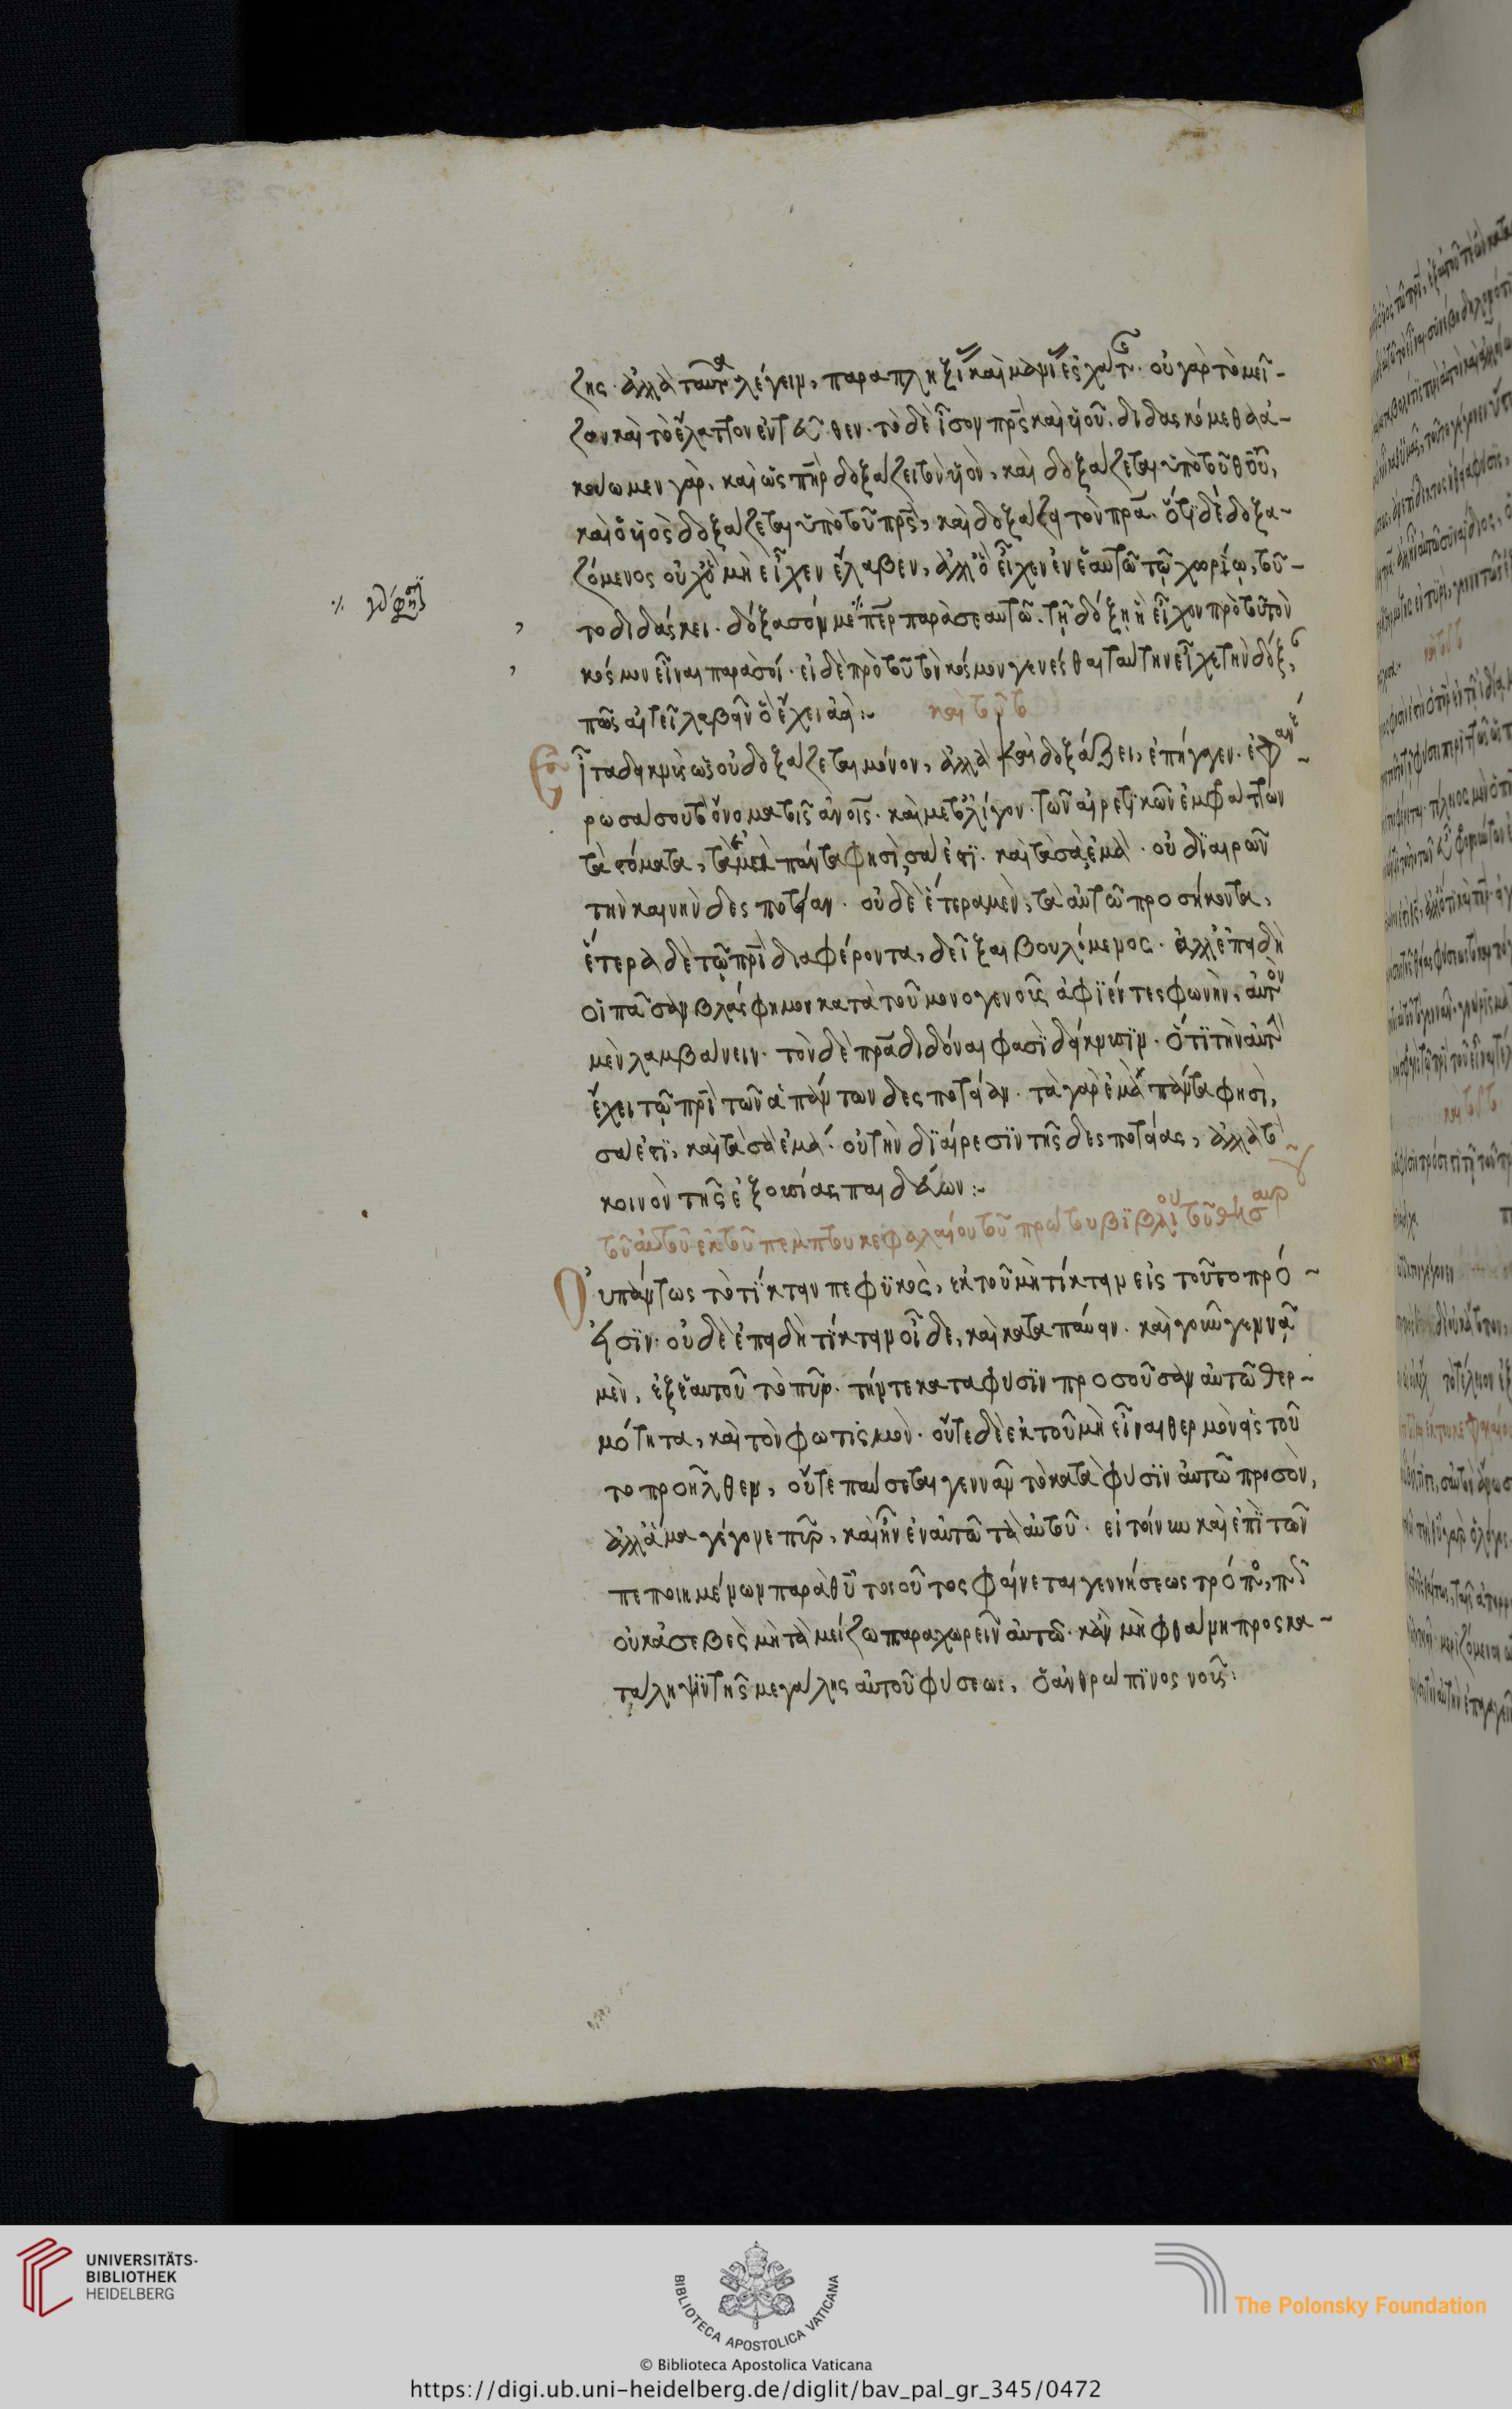 ζης. ἀλλὰ ταῦτα λέγειν, παραπληξία καὶ μανία ἐσχάτη. οὐ γὰρ τὸ μεῖ-
ζον καὶ τὸ ἔλαττον ἐντεῦθεν. τὸ δὲ ἶσον πρς καὶ υἱοῦ διδασκόμεθα. ἀ-
κούωμεν γὰρ. καὶ ὡς πηρ δοξάζει τὸν υἱὸν, καὶ δοξάζεται ὑπὸ τοῦ θυ,
καὶ ὁ υἱὸς δοξάζεται ὑπὸ τοῦ πρς, καὶ δοξάζει τὸν πρα. ὅτι δὲ δοξα-
ζόμενος οὐχ ὃ μὴ εἶχεν ἔλαβεν, ἀλλ' ὃ εἶχεν ἐνεφάνισε τῷ χωρίῳ, τοῦ-
το διδάσκει. δόξασόν με περ παρὰ σεαυτῶ. τῇ δόξῃ ᾗ εἶχον πρὸ τοῦ τὸν
κόσμον εἶναι παρὰ σοί. εἰ δὲ πρὸ τοῦ τὸν κόσμον γενέσθαι ταύτην εἶχε τὴν δόξαν
πῶς αἰτεῖ λαβεῖν ὃ ἔχει ἀεί:
καὶ τοῦτο
Εἶτα δεικνὺς ὡς οὐ δοξάζεται μόνον, ἀλλὰ καὶ δοξάζει, ἐπήγαγεν. ἐφανέ-
ρωσά σου τὸ ὄνομα τοῖς ἀνοις. καὶ μετ' ὀλίγον. τῶν αἱρετικῶν ἐμφράττων
τὰ στόματα, τὰ ἐμὰ πάντα φησὶ, σά ἐστι. καὶ τὰ σὰ ἐμά. οὐ διαιρῶν
τὴν κοινὴν δεσποτείαν. οὐδὲ ἕτερα μὲν, τὰ αὐτῶ προσήκοντα,
ἕτερα δὲ τῷ πρι διαφέροντα, δεῖξαι βουλόμενος. ἀλλ' ἐπειδὴ
οἱ πᾶσαν βλάσφημον κατὰ τοῦ μονογενοῦς ἀφιέντες φωνὴν, αὐτὸν
μὲν λαμβάνειν. τὸν δὲ πρα διδόναι φασὶ δείκνυσιν. ὅτι τὴν αὐτὴν
ἔχει τῷ πρι τῶν ἁπάντων δεσποτείαν. τὰ γὰρ ἐμὰ πάντα φησὶ,
σά ἐστι, καὶ τὰ σὰ ἐμά. οὐ τὴν διαίρεσιν τῆς δεσποτείας, ἀλλὰ τὸ
κοινὸν τῆς ἐξουσίας παιδεύων:
τοῦ αὐτοῦ ἐκ τοῦ πέμπτου κεφαλαίου τοῦ πρώτου βιβλίου τοῦ θησαυρ
Οὐ πάντως τὸ τίκτειν πεφυκὸς, ἐκ τοῦ μὴ τίκτειν εἰς τοῦτο πρό-
εισιν. οὐδὲ ἐπειδὴ τίκτειν οἶδε, καὶ καταπαύειν. καὶ γοῦν γεννᾷ
μὲν, ἐξ ἑαυτοῦ τὸ πῦρ. τήν τε κατὰ φύσιν προσοῦσαν αὐτῶ θερ-
μότητα, καὶ τὸν φωτισμόν. οὔτε δὲ ἐκ τοῦ μὴ εἶναι θερμὸν εἰς τοῦ
το προῆλθεν, οὔτε παύσεται γεννᾶν τὸ κατὰ φύσιν αὐτῶ προσὸν,
ἀλλ' ἅμα γέγονε πῦρ, καὶ ἦν ἐν αὐτῶ τὰ αὐτοῦ. εἰ τοίνυν καὶ ἐπὶ τῶν
πεποιημένων παρὰ θυ τοιοῦτος φαίνεται γεννήσεως τρόπος, πῶς
οὐκ ἀσεβὲς μὴ τὰ μείζω παραχωρεῖν αὐτῶ. κἂν μὴ φθάνῃ προς κα-
τάληψιν τῆς μεγάλης αὐτοῦ φύσεως, ὁ ἀνθρώπινος νοῦς:
UNIVERSITÄTS-
BIBLIOTHEK
HEIDELBERG
BIBLIOTECA APOSTOLICA VATICANA
The Polonsky Foundation
© Biblioteca Apostolica Vaticana
https://digi.ub.uni-heidelberg.de/diglit/bav_pal_gr_345/0472